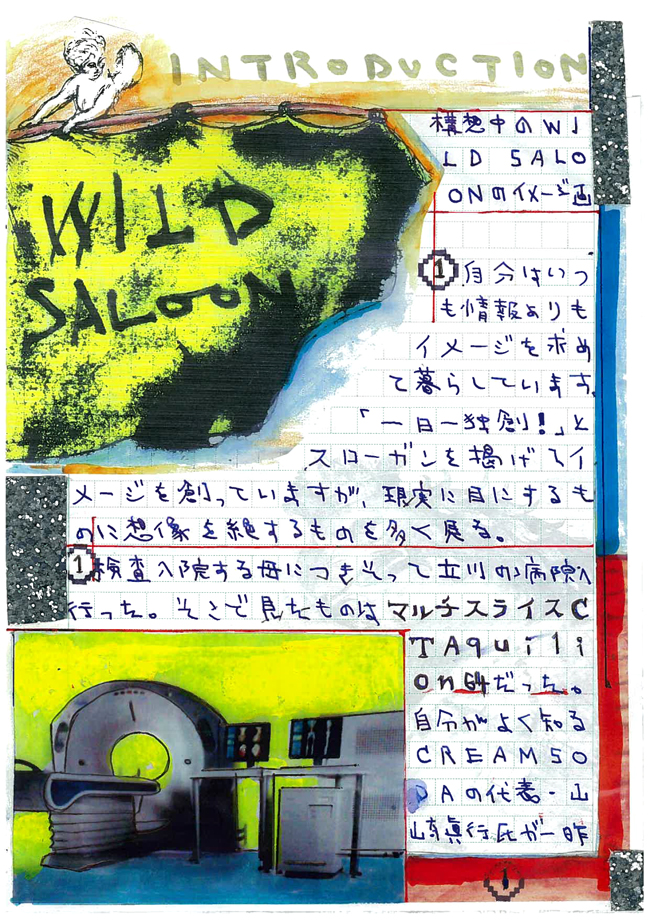 INTRODUCTION
WILD
SALOON
構想中のWI
LD SALO
ONのイメージ画
1 自分はいつ
も情報よりも
イメージを求め
て暮らしています。
「一日一独創!」と
スローガンを掲げてイ
メージを創っていますが、現実に目にするも
のに想像を絶するものを多く見る。
1 検査入院する母につきそって立川の病院へ
行った。そこで見たものはマルチスライスC
TAquili
on64だった。
自分がよく知る
CREAMSO
DAの代表・山
崎眞行氏が一昨
1